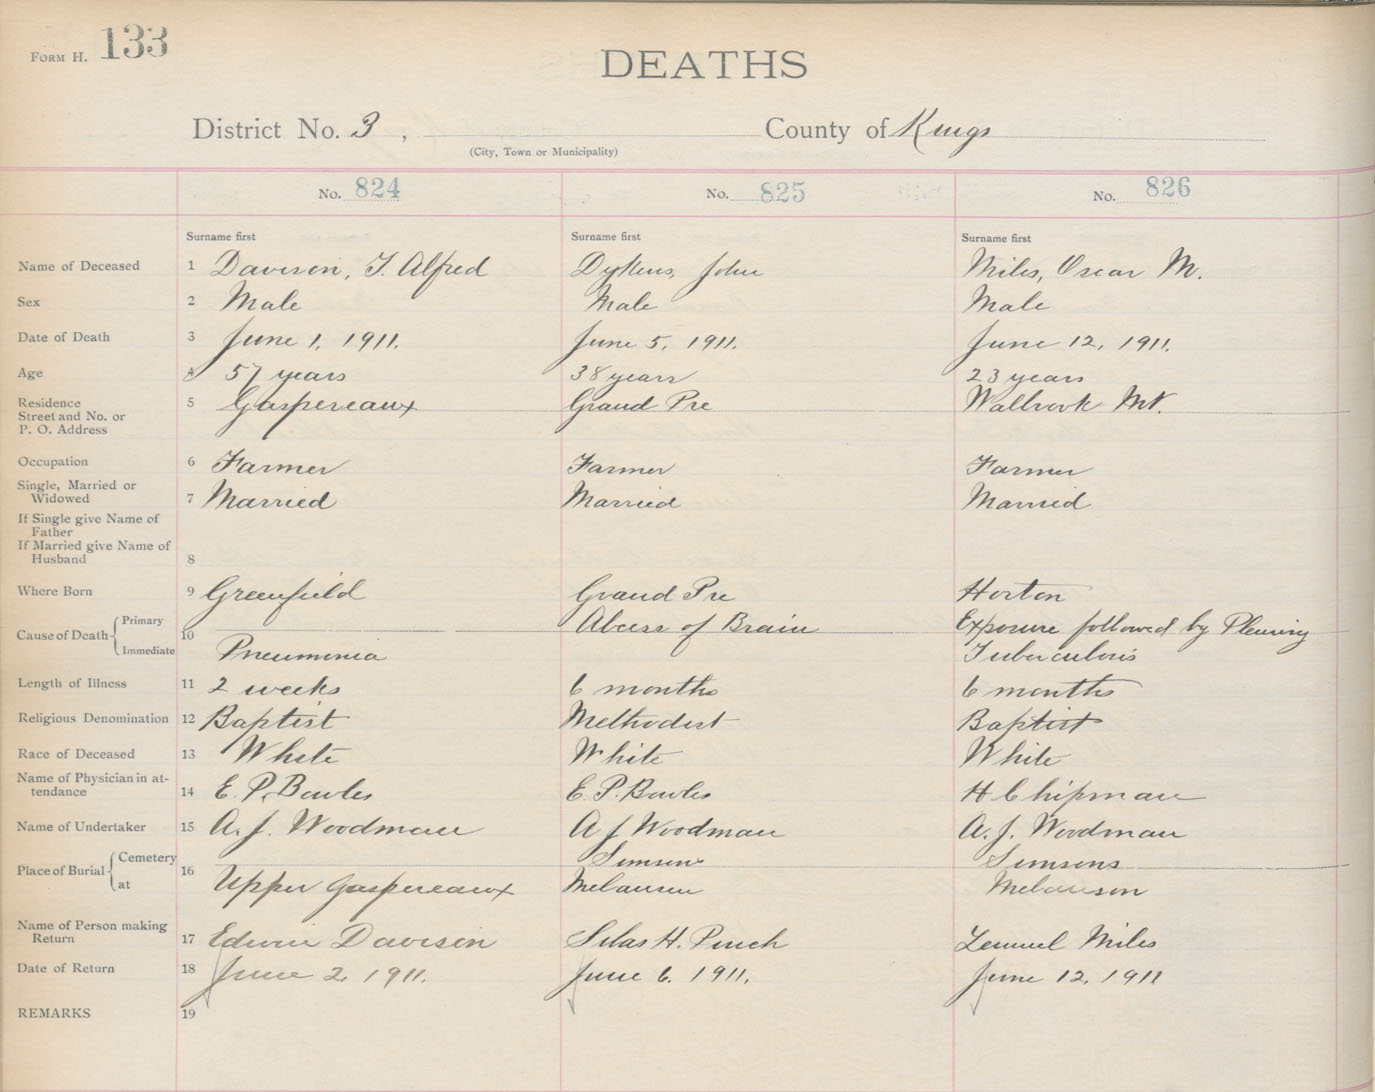 FORM H. 133
DEATHS
District No. 3, County of Kings
(City, Town or Municipality)
No. 824 No. 825 No. 826
Surname first Surname first Surname first
Name of Deceased 1 Davison, J. Alfred Dykens, John Miles, Oscar M.
Sex 2 Male Male Male
Date of Death 3 June 1, 1911. June 5, 1911. June 12, 1911.
Age 4 57 years 38 years 23 years
Residence 5 Gaspereaux Grand Pre Wallbrook Mt.
Street and No. or
P. O. Address
Occupation 6 Farmer Farmer Farmer
Single, Married or
Widowed 7 Married Married Married
If Single give Name of
Father
If Married give Name of
Husband 8
Where Born 9 Greenfield Grand Pre Horton
Cause of Death Primary 10 Abcess of Brain Exposure followed by Pleurisy
Immediate Pneumonia Tuberculosis
Length of Illness 11 2 weeks 6 months 6 months
Religious Denomination 12 Baptist Methodist Baptist
Race of Deceased 13 White White White
Name of Physician in at-
tendance 14 E. P. Bowles E. P. Bowles H Chipman
Name of Undertaker 15 A. J. Woodman A J Woodman A. J. Woodman
Place of Burial Cemetery 16 Simsons Simsons
at Upper Gaspereaux Melanson Melanson
Name of Person making
Return 17 Edwin Davison Silas H. Pinch Lemuel Miles
Date of Return 18 June 2, 1911. June 6. 1911. June 12, 1911
REMARKS 19